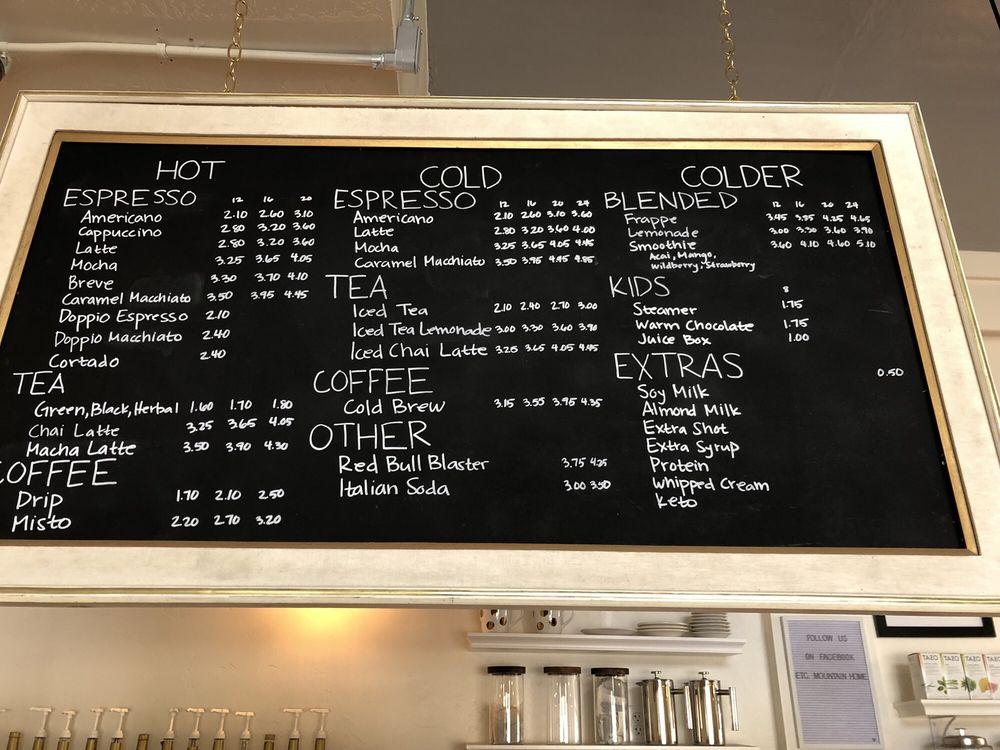 HOT
ESPRESSO 12 16 20
Americano 2.10 2.60 3.10
Cappuccino 2.80 3.20 3.60
Latte 2.80 3.20 3.60
Mocha 3.25 3.65 4.05
Breve 3.30 3.70 4.10
Caramel Macchiato 3.50 3.95 4.45
Doppio Espresso 2.10
Doppio Macchiato 2.40
Cortado 2.40
TEA
Green, Black, Herbal 1.60 1.70 1.80
Chai Latte 3.25 3.65 4.05
Macha Latte 3.50 3.90 4.30
COFFEE
Drip 1.70 2.10 2.50
Misto 2.20 2.70 3.20
COLD
ESPRESSO 12 16 20 24
Americano 2.10 2.60 3.10 3.60
Latte 2.80 3.20 3.60 4.00
Mocha 3.25 3.65 4.05 4.45
Caramel Macchiato 3.50 3.95 4.45 4.85
TEA
Iced Tea 2.10 2.40 2.70 3.00
Iced Tea Lemonade 3.00 3.30 3.60 3.90
Iced Chai Latte 3.25 3.65 4.05 4.45
COFFEE
Cold Brew 3.15 3.55 3.95 4.35
OTHER
Red Bull Blaster 3.75 4.25
Italian Soda 3.00 3.50
COLDER
BLENDED 12 16 20 24
Frappe 3.45 3.85 4.25 4.65
Lemonade 3.00 3.30 3.60 3.90
Smoothie 3.60 4.10 4.60 5.10
Acai, Mango,
Wildberry, Strawberry
KIDS 8
Steamer 1.75
Warm Chocolate 1.75
Juice Box 1.00
EXTRAS 0.50
Soy Milk
Almond Milk
Extra Shot
Extra Syrup
Protein
Whipped Cream
Keto
FOLLOW US
ON FACEBOOK
ETC. MOUNTAIN HOME
TAZO TAZO TAZO TAZO